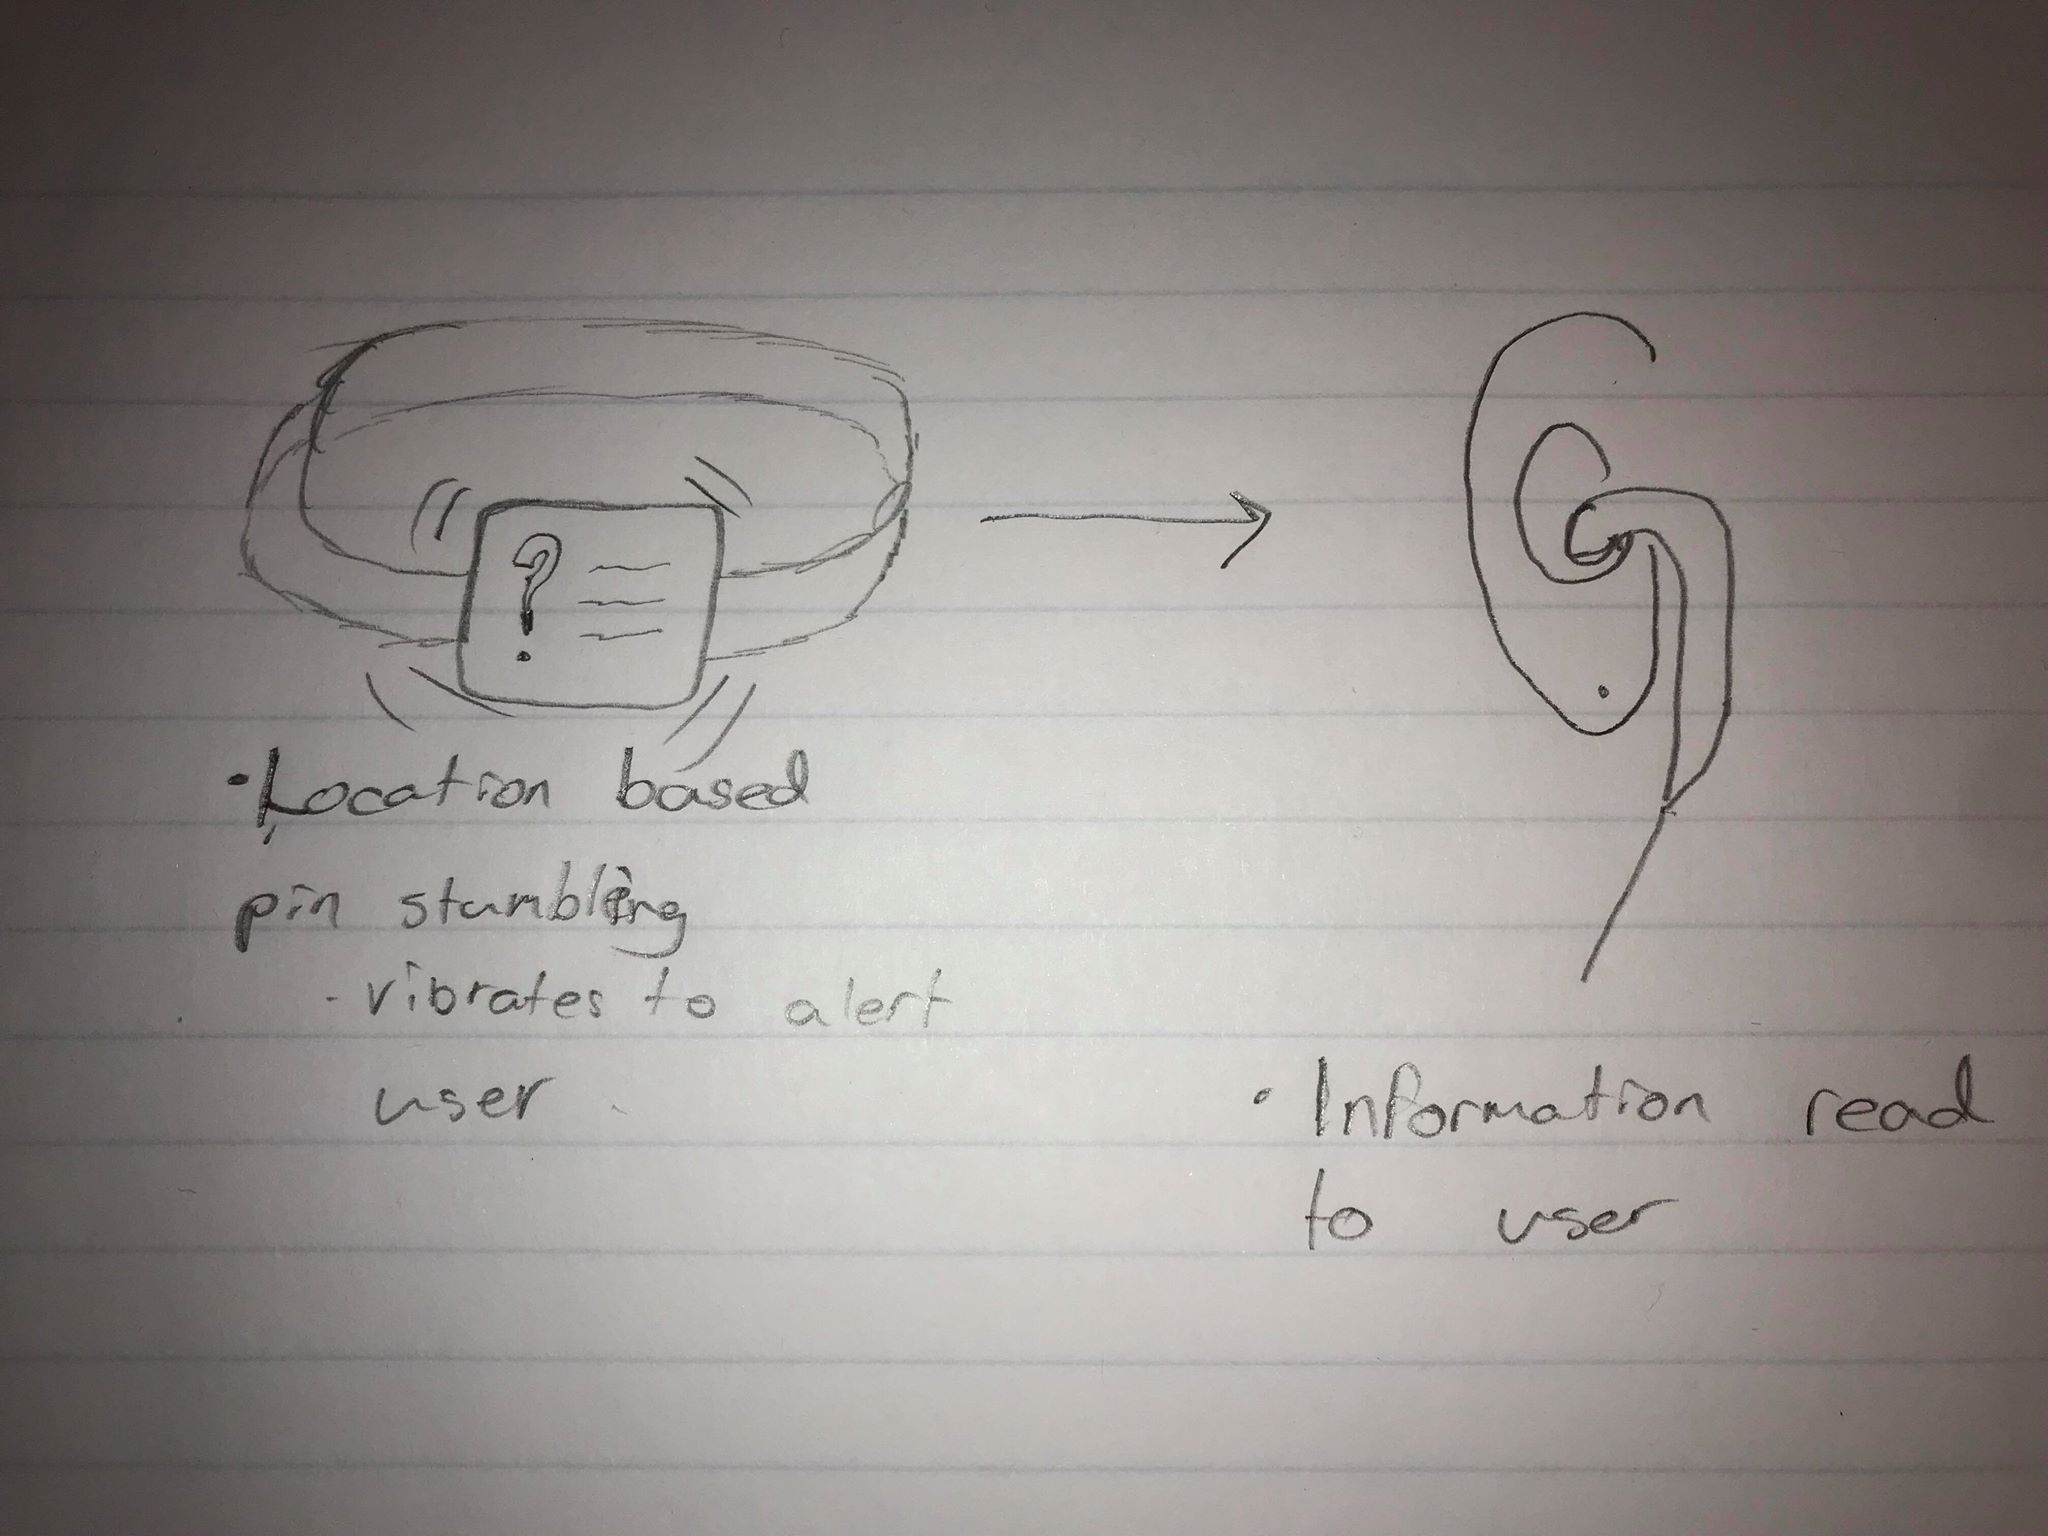 ?
• Location based
pin stumbling
- vibrates to alert
user
• Information read
to user